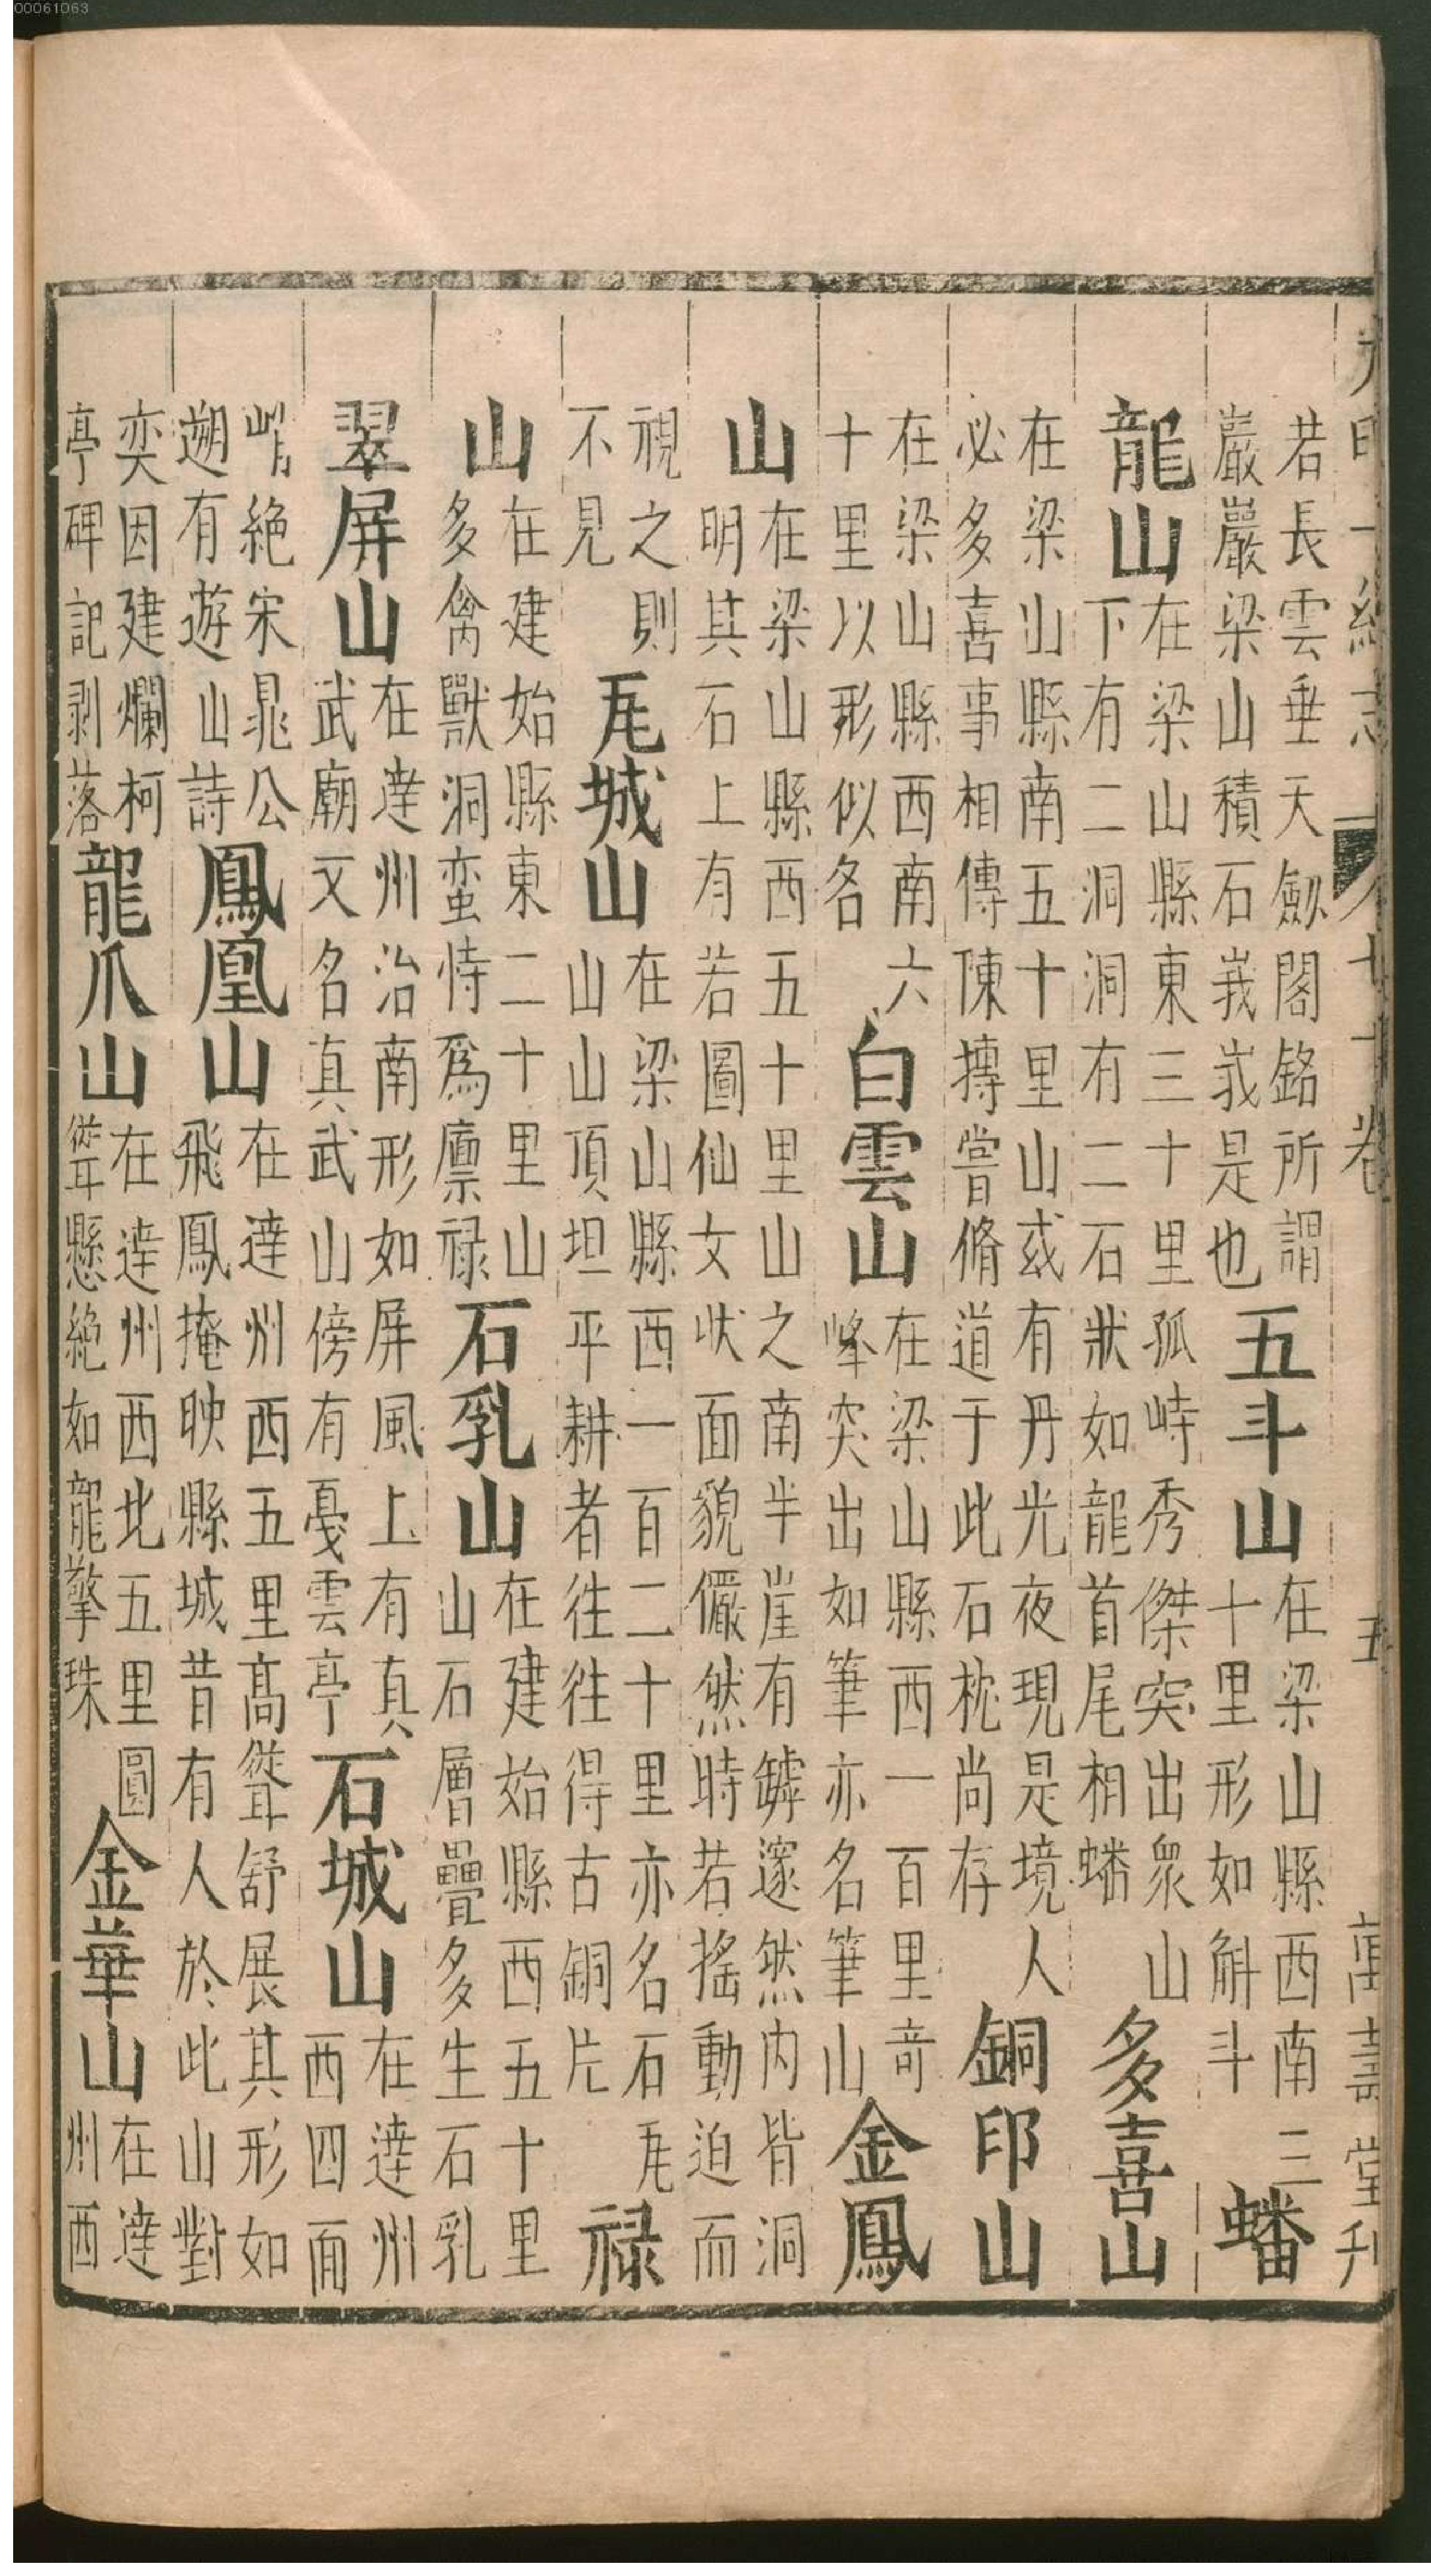 大明一統志 七十卷 五 萬壽堂刊
若長雲垂天劔閣銘所謂
巖巖梁山積石峩峩是也
五斗山
在梁山縣西南三
十里形如斛斗
蟠
龍山
在梁山縣東三十里孤峙秀傑突出衆山
下有二洞洞有二石狀如龍首尾相蟠
多喜山
在梁山縣南五十里山或有丹光夜現是境人
必多喜事相傳陳摶嘗脩道于此石枕尚存
銅印山
在梁山縣西南六
十里以形似名
白雲山
在梁山縣西一百里奇
峰突出如筆亦名筆山
金鳳
山
在梁山縣西五十里山之南半崖有罅邃然内皆洞
明其石上有若圖仙女状面貌儼然時若搖動迫而
視之則
不見
瓦城山
在梁山縣西一百二十里亦名石瓦
山山頂坦平耕者往往得古銅片
禄
山
在建始縣東二十里山
多禽獸洞蛮恃爲廪禄
石乳山
在建始縣西五十里
山石層疊多生石乳
翠屏山
在達州治南形如屏風上有真
武廟又名真武山傍有戞雲亭
石城山
在達州
西四面
峭絶宋晁公
遡有遊山詩
鳳凰山
在達州西五里髙聳舒展其形如
飛鳳掩映縣城昔有人於此山對
奕因建爛柯
亭碑記剥落
龍爪山
在達州西北五里圓
聳懸絶如龍擎珠
金華山
在達
州西
00061063